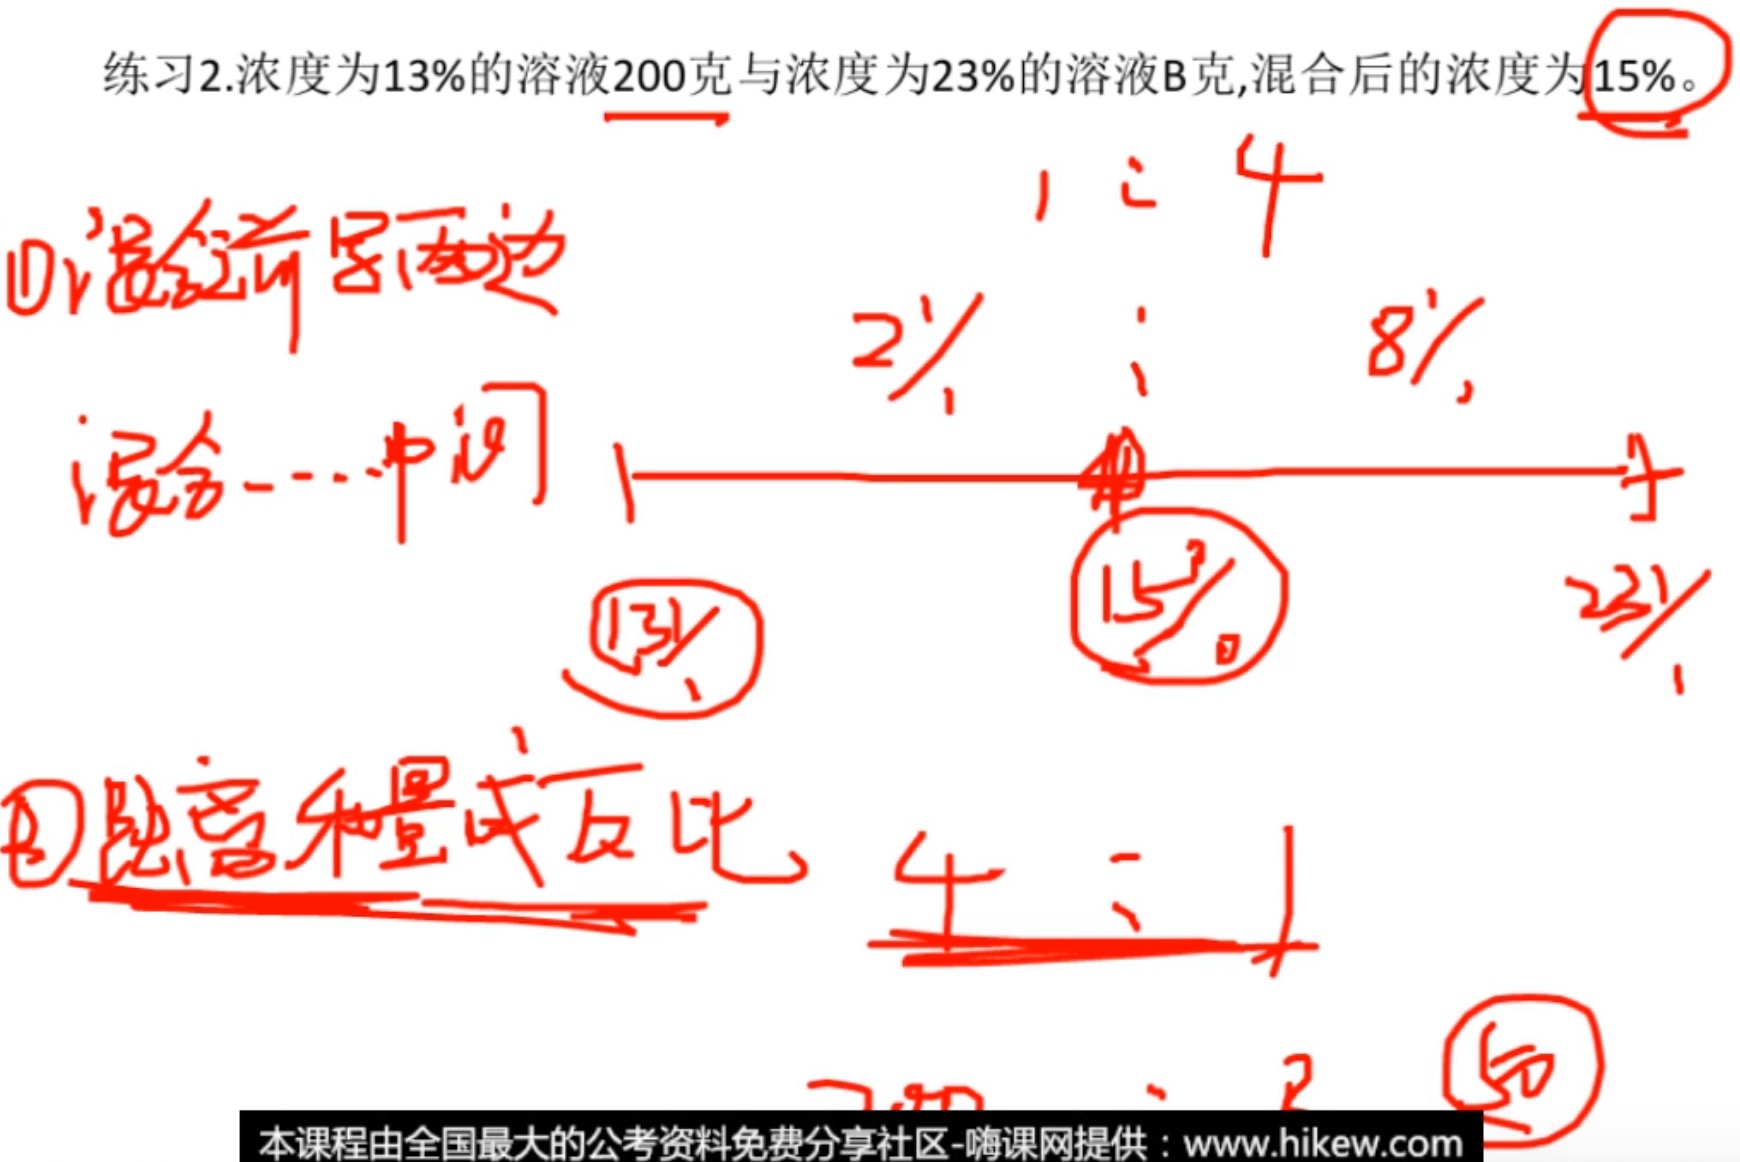 练习2.浓度为13%的溶液200克与浓度为23%的溶液B克,混合后的浓度为15%。
1 : 4
①混合前写两边
2% : 8%
混合……中间
13% 15% 23%
②距离和量成反比
4 : 1
200 : ? 50
本课程由全国最大的公考资料免费分享社区-嗨课网提供：www.hikew.com